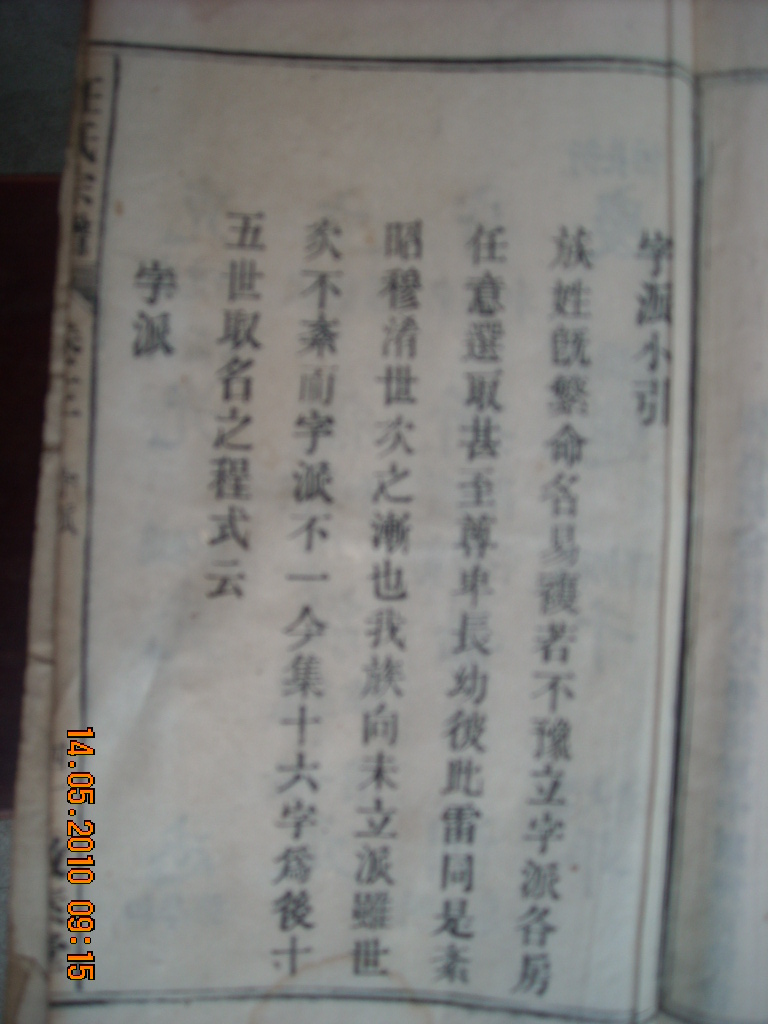 字派小引
族姓旣繁命名易複若不豫立字派各房
任意選取甚至尊卑長幼彼此雷同是紊
昭穆淆世次之漸也我族向未立派雖世
次不紊而字派不一今集十六字爲後十
五世取名之程式云
字派
氏宗譜
14.05.2010 09:15